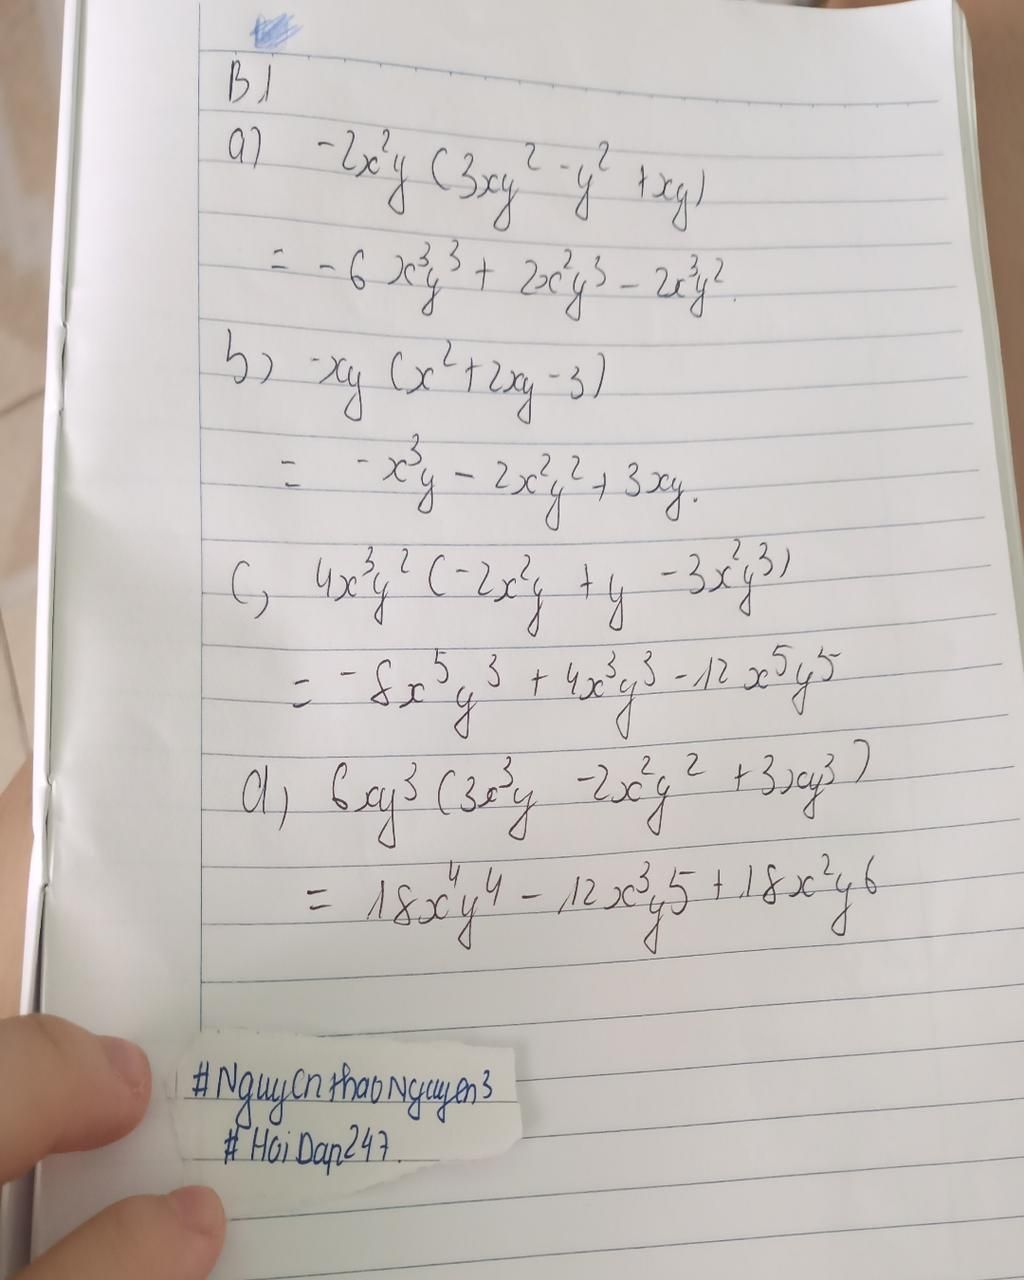 B1
a) -2x²y (3xy² - y² + xy)
= -6x³y³ + 2x²y³ - 2x³y².
b) -xy (x² + 2xy - 3)
= -x³y - 2x²y² + 3xy.
c, 4x³y² (-2x²y + y - 3x²y³)
= -8x⁵y³ + 4x³y³ - 12x⁵y⁵
d, 6xy³ (3x³y - 2x²y² + 3xy³)
= 18x⁴y⁴ - 12x³y⁵ + 18x²y⁶
#NguyenthaoNguyen3
#HoiDap247.